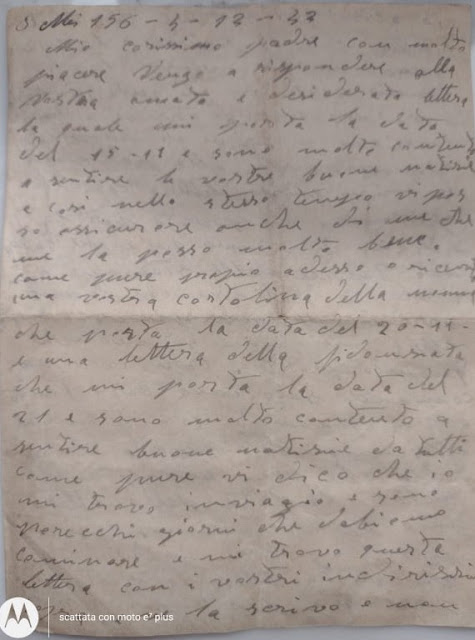 156 - 4 - 12 - 42
Mio carissimo padre con molto
piacere vengo a rispondere alla
vostra amata e desiderata lettera
la quale mi porta la data
del 15-11 e sono molto contento
a sentire le vostre buone notizie
e così nello stesso tempo vi pos
so assicurare anche di me che
me la passo molto bene.
come pure proprio adesso o ricevuto
una vostra cartolina della
che porta la data del 20-11
e una lettera della fidanzata
che mi porta la data del
21 e sono molto contento a
sentire buone notizie da tutti
come pure vi dico che io
mi trovo in viaggio e sono
parecchi giorni che dobiamo
caminare e mi trovo questa
lettera con i vostri indirissi
la scrivo e non
scattata con moto e⁵ plus